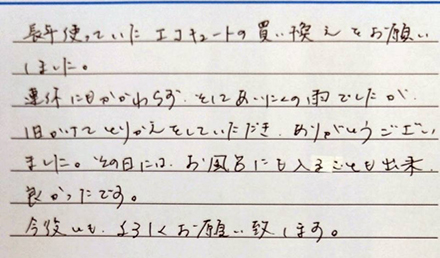 長年使っていたエコキュートの買い換えをお願い
しました。
連休にもかかわらず、そしてあいにくの雨でしたが、
1日がけでとりかえをしていただき、ありがとうござい
ました。その日には、お風呂にも入ることも出来、
良かったです。
今後とも、よろしくお願い致します。